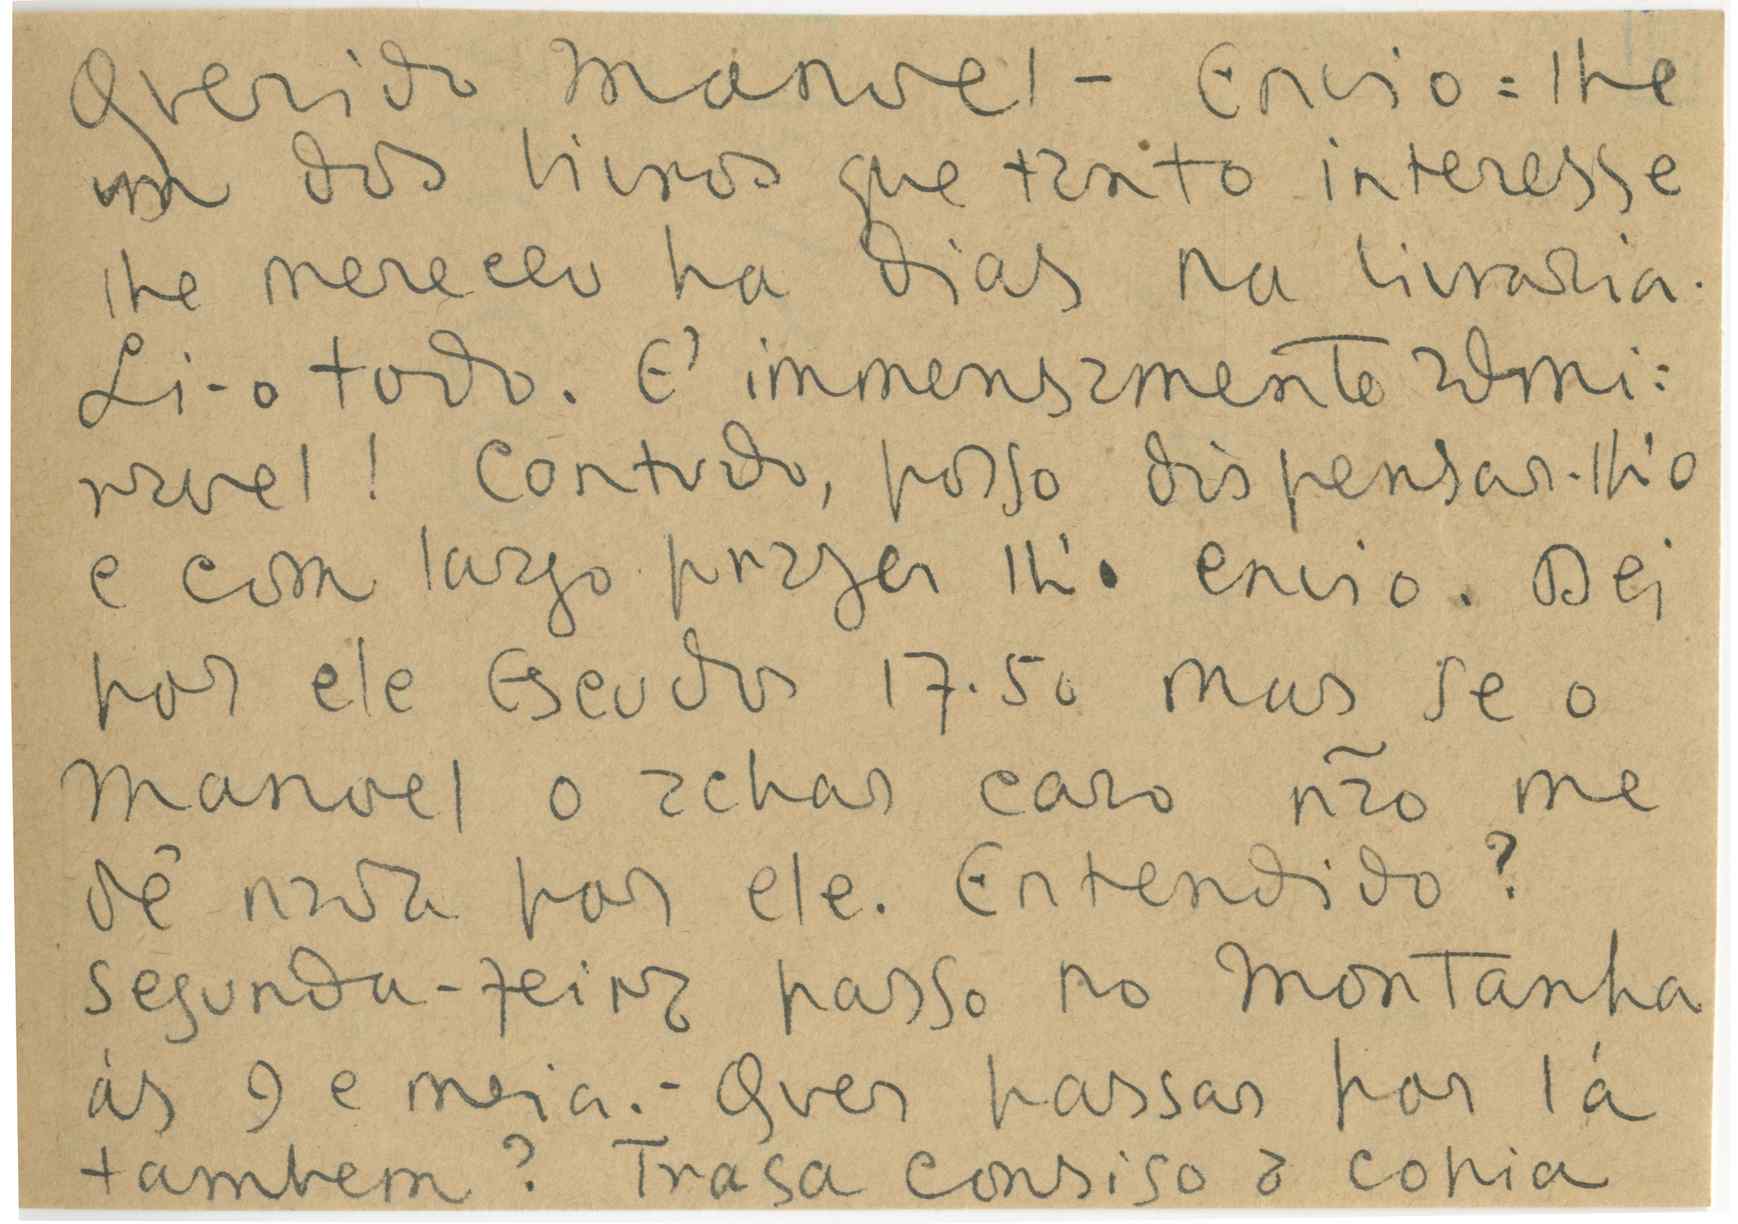 Querido Manoel - Envio=lhe
um dos livros que tanto interesse
lhe mereceu ha dias na livraria.
Li-o todo. E' immensamente admi=
ravel! Contudo, posso dispensar-lh'o
e com largo prazer lh'o envio. Dei
por ele Escudos 17.50 mas se o
Manoel o achar caro não me
dê nada por ele. Entendido?
Segunda-feira passo no Montanha
ás 9 e meia. - Quer passar por lá
tambem? Traga consigo a copia